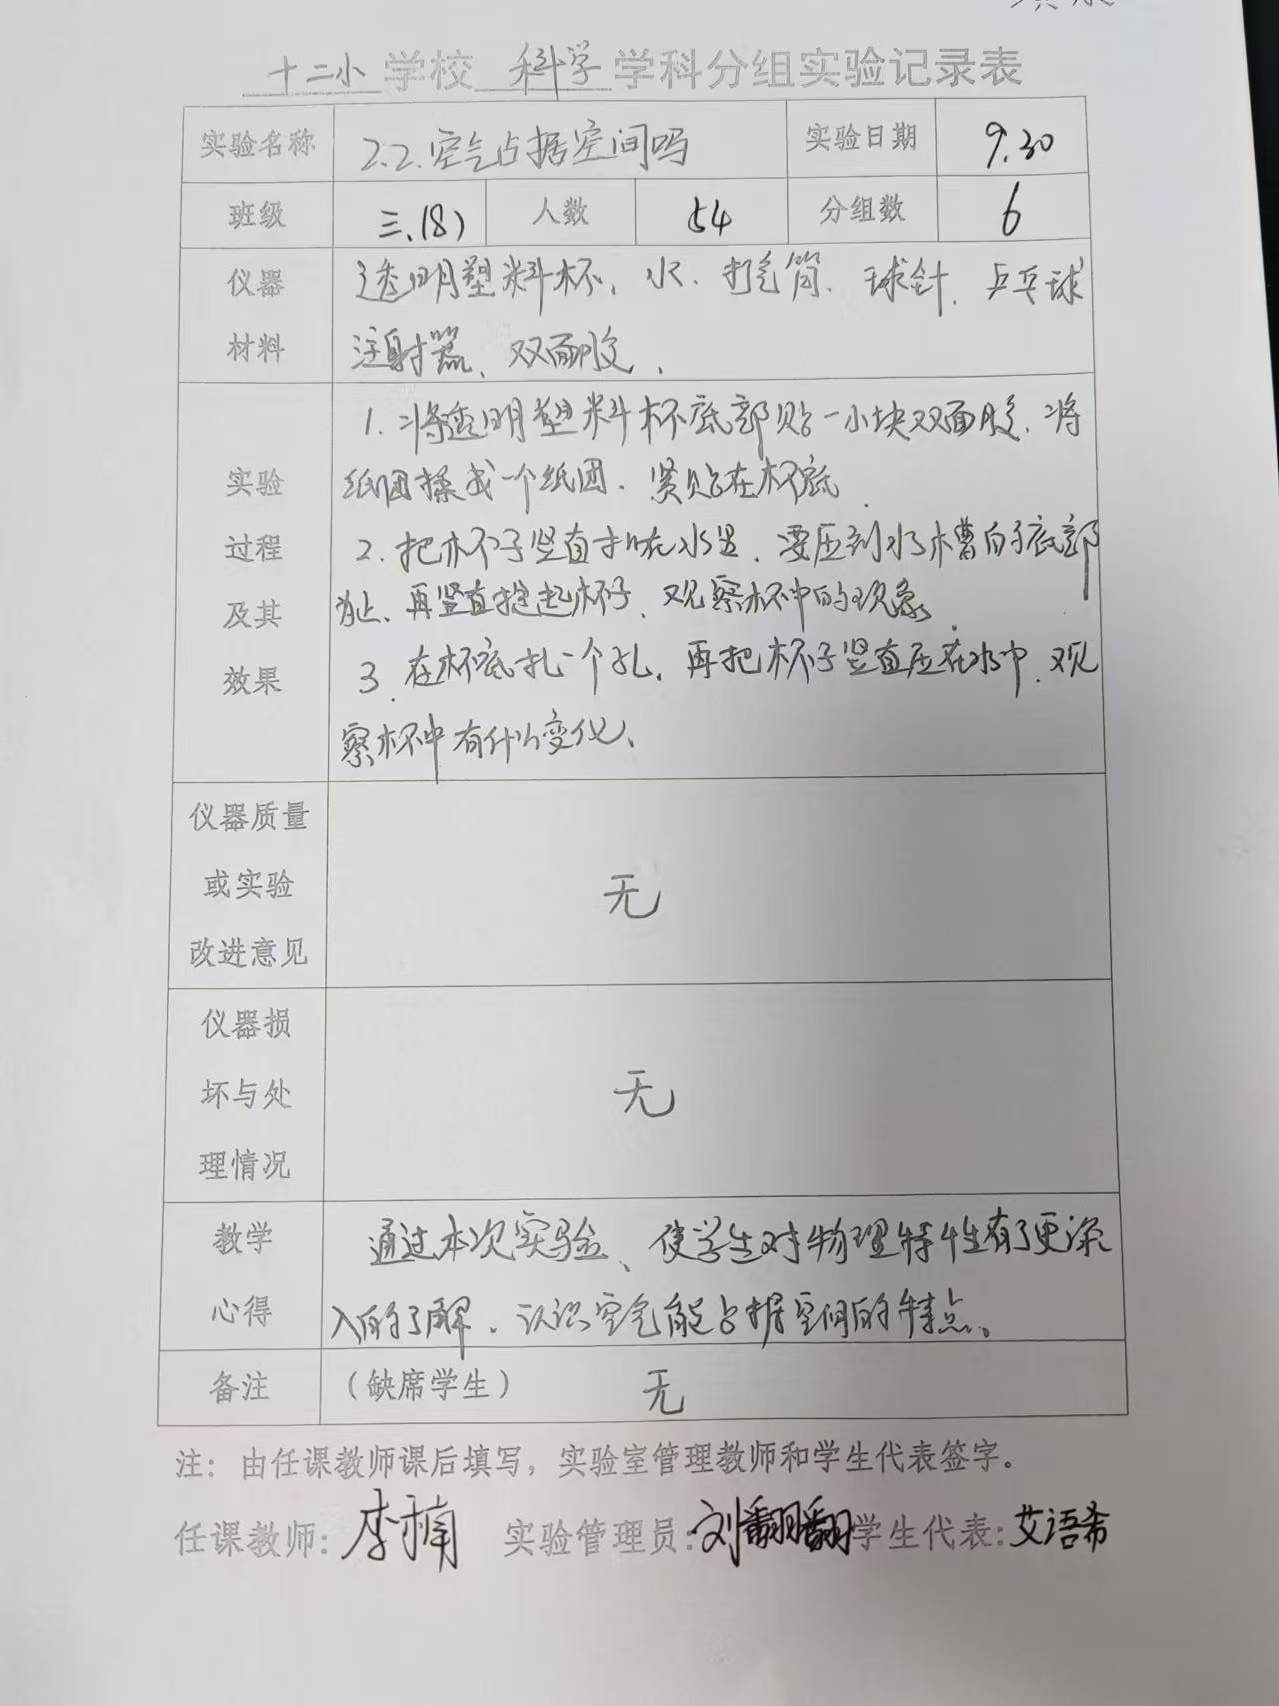 十二小学校 科学 学科分组实验记录表
实验名称 2.2.空气占据空间吗 实验日期 9.30
班级 三.(8) 人数 54 分组数 6
仪器 透明塑料杯、水、打气筒、球针、乒乓球
材料 注射器、双面胶、
1.将透明塑料杯底部贴一小块双面胶、将
实验 纸团揉成一个纸团、紧贴在杯底
过程 2.把杯子竖直扣在水里、要压到水槽的底部
及其 为止、再竖直提起杯子、观察杯中的现象
效果 3.在杯底扎一个孔、再把杯子竖直压在水中、观
察杯中有什么变化、
仪器质量
或实验 无
改进意见
仪器损
坏与处 无
理情况
教学 通过本次实验、使学生对物理特性有了更深
心得 入的了解、认识空气能占据空间的特点。
备注 （缺席学生） 无
注：由任课教师课后填写，实验室管理教师和学生代表签字。
任课教师：李楠 实验管理员：刘翻翻 学生代表：艾语希